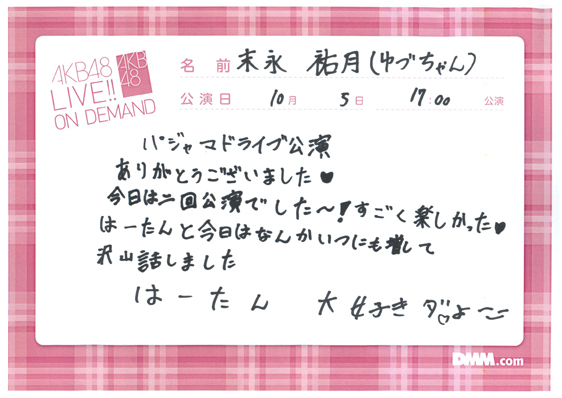 AKB48
LIVE!!
ON DEMAND
AKB
48
名前 末永 祐月(ゆづちゃん)
公演日 10月 5日 17:00 公演
パジャマドライブ公演
ありがとうございました♥
今日は二回公演でした〜!すごく楽しかった♥
はーたんと今日はなんかいつにも増して
沢山話しました
はーたん 大好きダよー
DMM.com